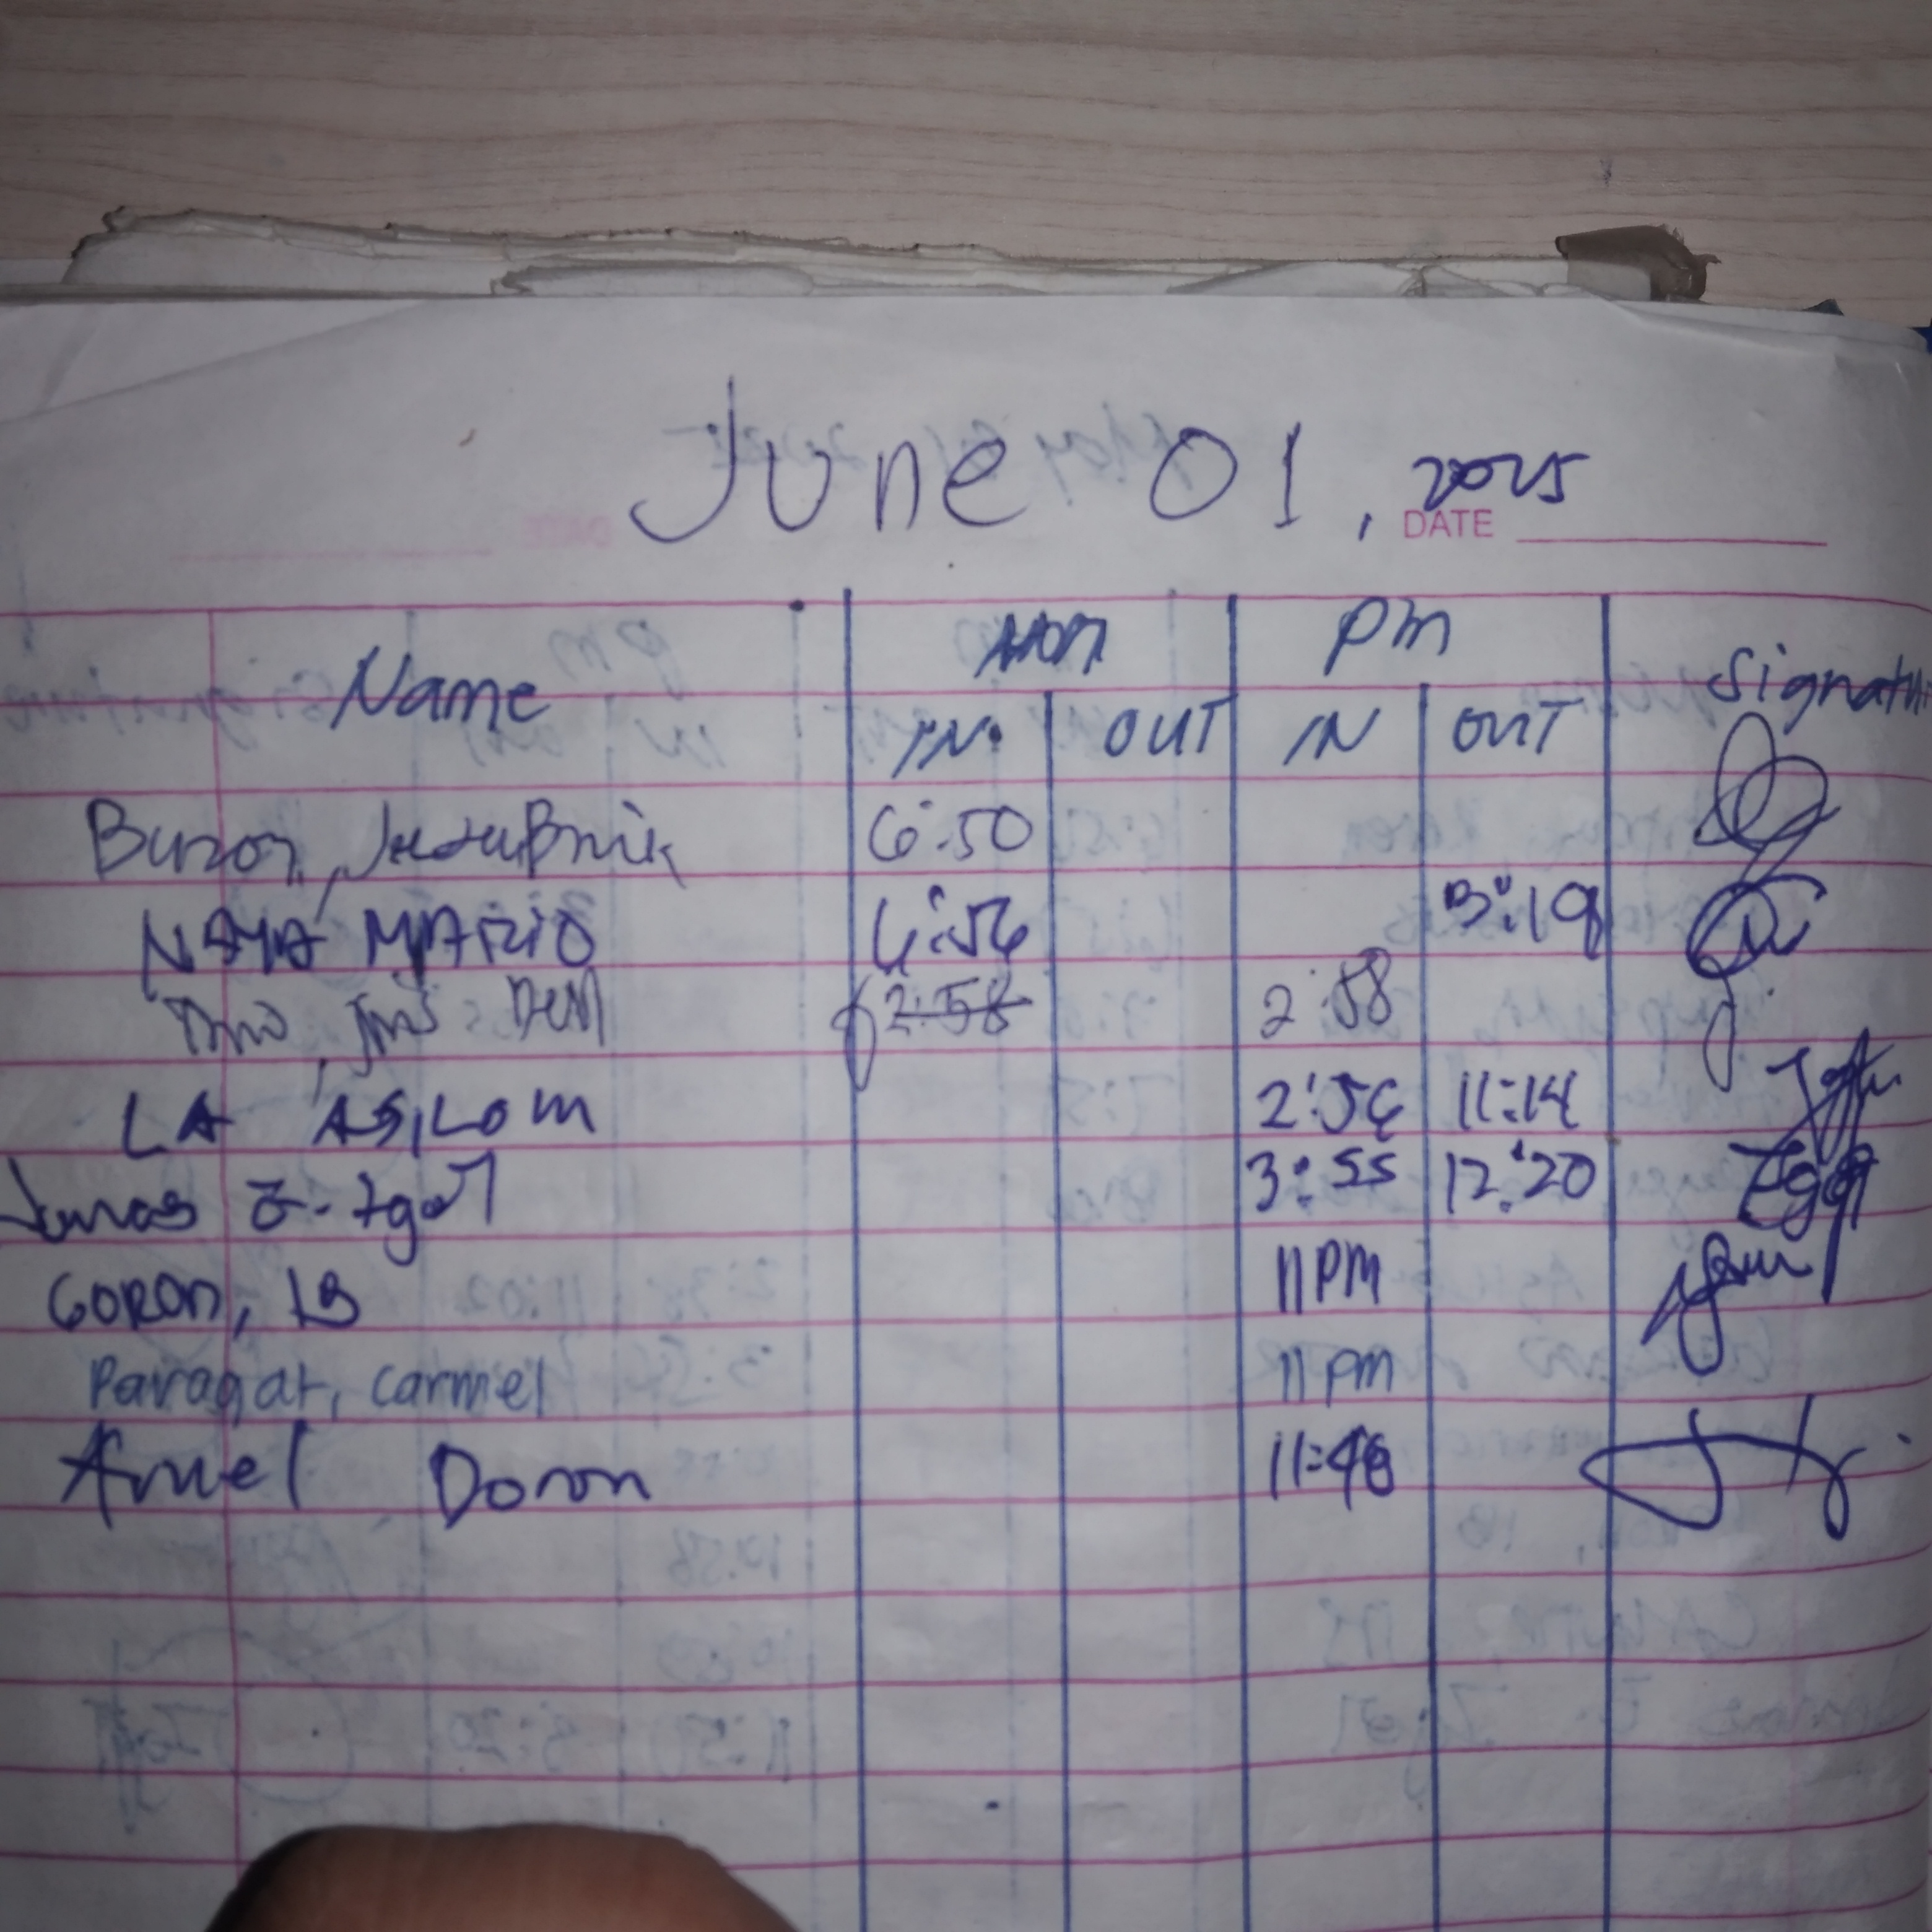 June 01, 2025
DATE
Name PM Signatu
IN OUT IN OUT
Buron, 6:50
NAYA MARIO 6:56 3:19
2:58 2:58
LA ASILOM 2:56 11:14
Jumas E. Igot 3:55 12:20
GORON, IB 11PM
Paragat, Carmel 11PM
Arnel Doron 11:48